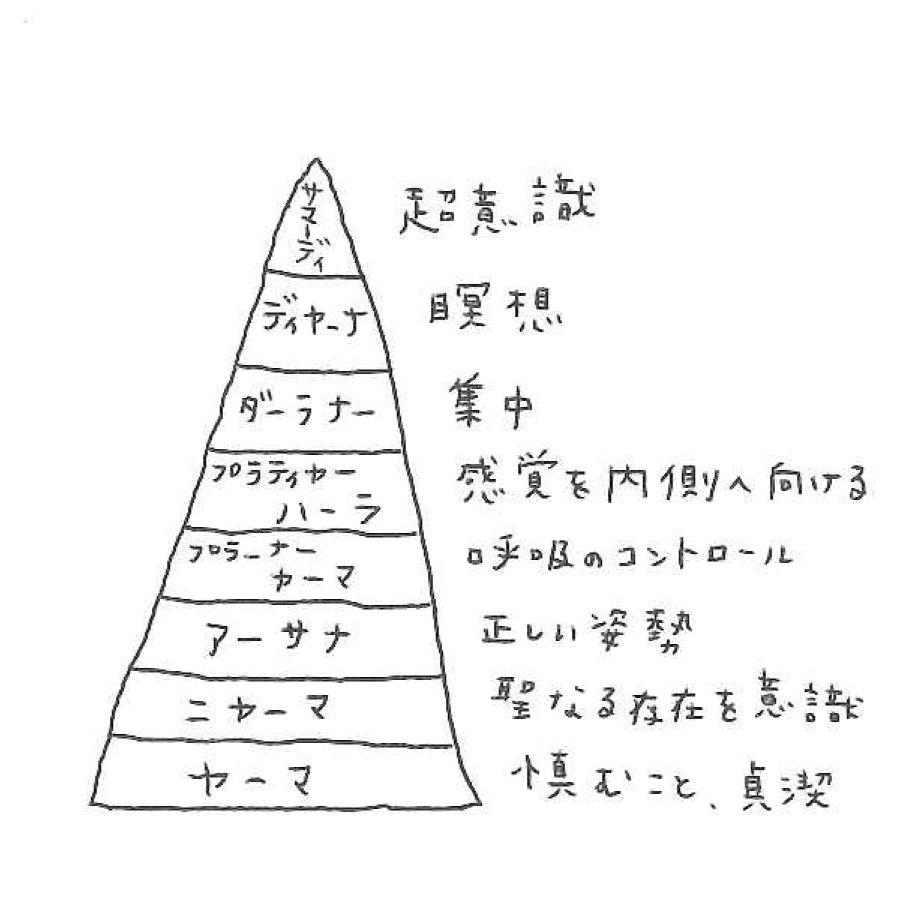 サマーディ 超意識
ディヤーナ 瞑想
ダーラナー 集中
プラティヤー
ハーラ 感覚を内側へ向ける
プラーナー
ヤーマ 呼吸のコントロール
アーサナ 正しい姿勢
ニヤーマ 聖なる存在を意識
ヤーマ 慎むこと、貞潔